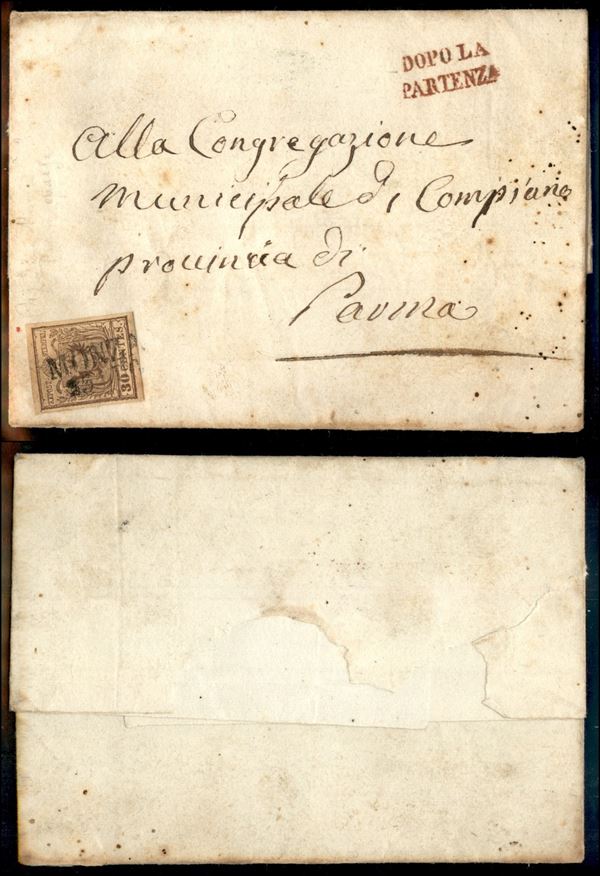 DOPO LA
PARTENZA
Alla Congregazione
Municipale di Compiano
provincia di
Parma
MONZ
30 CENTES.